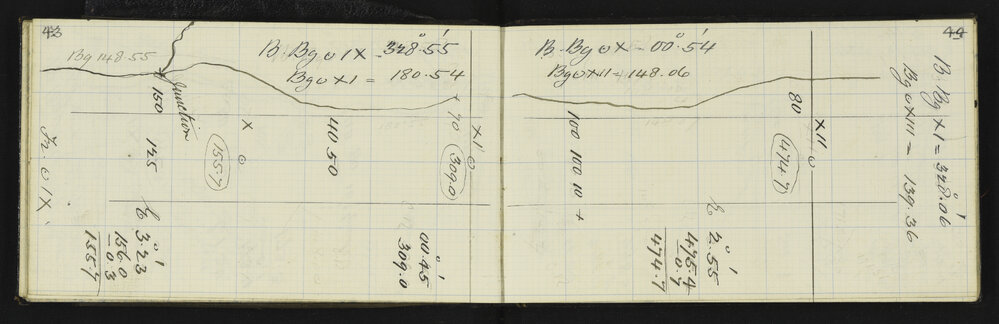 43
Bg 148.55
B. Bg ⊙ IX - 328°.55'
Bg ⊙ XI = 180.54
Junction
150
125
Fr. ⊙ IX.
X
⊙
155.7
40 50
70
XI
⊙
309.0
E 3°.23'
156.0
0.3
155.7
00°.45'
309.0
44
B. Bg ⊙ X - 00°.54'
Bg ⊙ XII = 148.06
100 100 10 +
80
XII
⊙
474.7
E 2°.55'
475.4
0.7
474.7
B. Bg XI = 328°.06'
Bg ⊙ XIII - 139.36